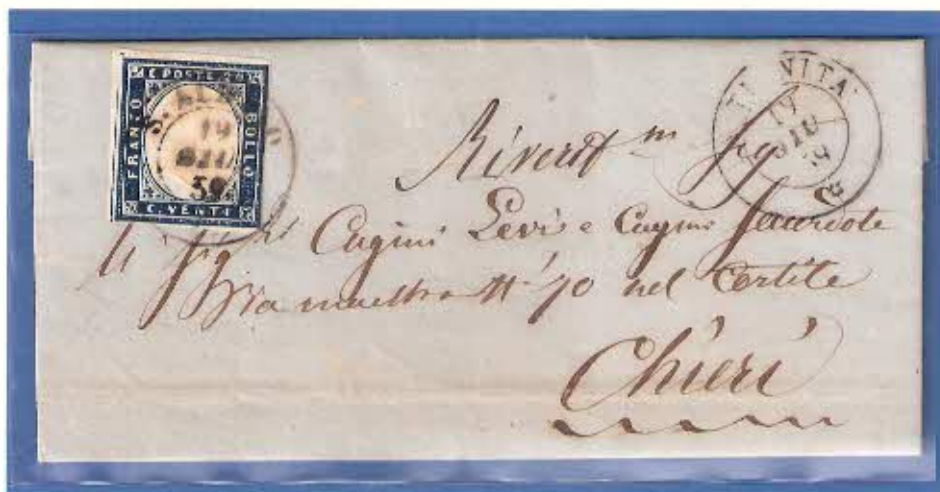 C. POSTE 20
FRANCO
BOLLO
C. VENTI
19
GIU
59
VITA
19
GIU
59
Riverit.m Sig
li Sig.ri Cugini Levi e Cugini Sacerdote
Via maestra N° 70 nel Cortile
Chieri